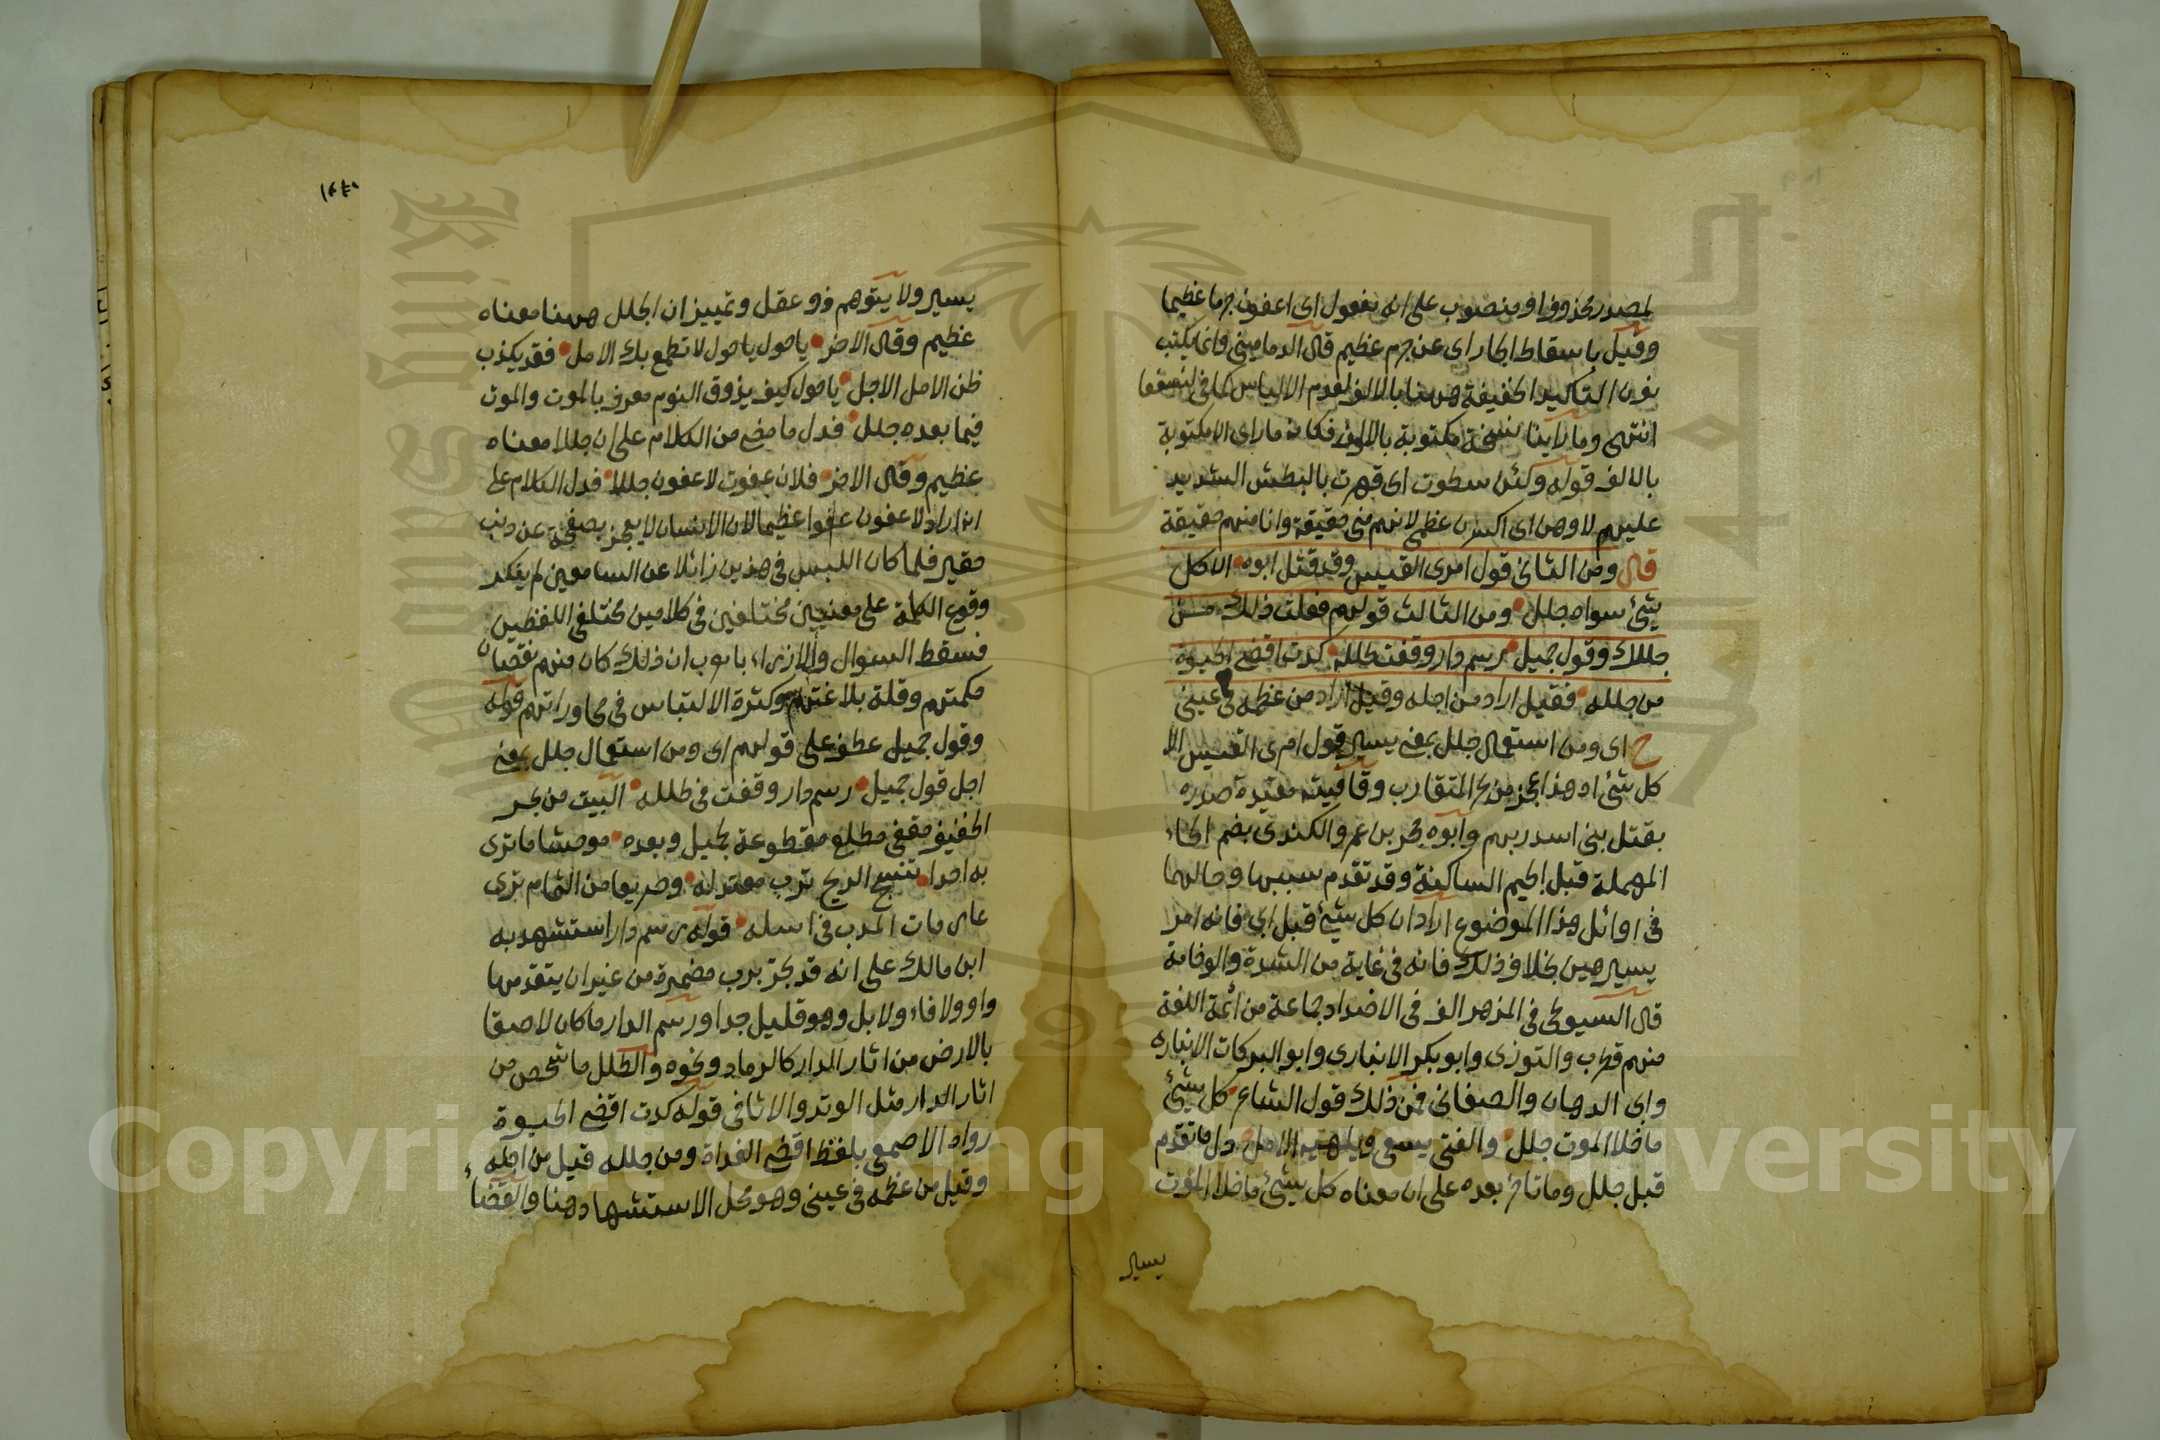 لمصدر محذوف او منصوب على انه مفعول اى اعفون جرما عظيما
وقيل باسقاط الجار اى عن جرم عظيم قال الدمامينى وانما يكتب
نون التاكيد الخفيفة ههنا بالالف لعدم الالباس كما فى لنسفعا
انتهى وما راينا نسخة مكتوبة بالالف فكانه ما راى الا مكتوبة
بالالف قوله ولئن سطوت اى قهرت بالبطش الشديد
عليهم لاوهن اى اكسرن عظمى لانهم منى حقيقة وانا منهم حقيقة
قال ومن الثانى قول امرئ القيس وقد قتل ابوه الا كل
شئ سواه جلل ومن الثالث قولهم فعلت ذلك من
جللك وقول جميل رسم دار وقفت فى طلله كدت اقضى الحيوة
من جلله فقيل اراد من اجله وقيل اراد من عظمه فى عينى
ح اى ومن استعمال جلل بمعنى يسير قول امرئ القيس الا
كل شئ اه هذا عجز من المتقارب وقافيته مقيدة صدره
بقتل بنى اسد ربهم وابوه حجر بن عمرو الكندى بضم الحاء
المهملة قبل الجيم الساكنة وقد تقدم سببها وحالهما
فى اوائل هذا الموضوع اراد ان كل شئ قبل ابى فانه امر
يسير هين بخلاف ذلك فانه فى غاية من الشدة والوخامة
قال السيوطى فى المزهر الف فى الاضداد جماعة من ائمة اللغة
منهم قطرب والتوزى وابو بكر الانبارى وابو البركات الانبارى
وابن الدهان والصغانى فمن ذلك قول الشاعر كل شئ
ما خلا الموت جلل والفتى يسعى ويلهيه الامل دل ما تقدم
قبل جلل وما تاخر بعده على ان معناه كل شئ ما خلا الموت
يسير
١٤٤٠
يسير ولا يتوهم ذو عقل وتمييز ان الجلل ههنا معناه
عظيم وقال الاخر يا خول يا خول لا تطمع بك الامل فقد يكذب
ظن الامل الاجل يا خول كيف يذوق النوم معرف بالموت والموت
فيما بعده جلل فدل ما مضى من الكلام على ان جللا معناه
عظيم وقال الاخر فلان عفوت لاعفون جللا فدل الكلام على
انه اراد لاعفون عفوا عظيما لان الانسان لا يعجز بصفحه عن ذنب
حقير فلما كان اللبس فى هذين زائلا عن السامعين لم ينكر
وقوع الكلمة على معنيين مختلفين فى كلامين مختلفى اللفظين
فسقط السوال والازراء بالعرب ان ذلك كان منهم نقصان
حكمتهم وقلة بلاغتهم وكثرة الالتباس فى محاوراتهم قوله
وقول جميل عطف على قولهم اى ومن استعمال جلل بمعنى
اجل قول جميل رسم دار وقفت فى طلله البيت من بحر
الخفيف مقفى مطلع مقطوعة لجميل وبعده موحشا ما ترى
به احدا تنسج الريح ترب معتدله وصريعا من الثمام ترى
عارمات المدب فى اسله قوله رسم دار استشهد به
ابن مالك على انه قد يجر برب مضمرة من غير ان يتقدمها
واو ولا فاء ولا بل وهو قليل جدا ورسم الدار ما كان لاصقا
بالارض من اثار الدار كالرماد ونحوه والطلل ما شخص من
اثار الدار مثل الوتد والاثافى قوله كدت اقضى الحيوة
رواه الاصمعى بلفظ اقضى الغداة ومن جلله قيل من اجله
وقيل من عظمه فى عينى وهو محل الاستشهاد هنا والقضاء
King Saud University
Copyright © King Saud University